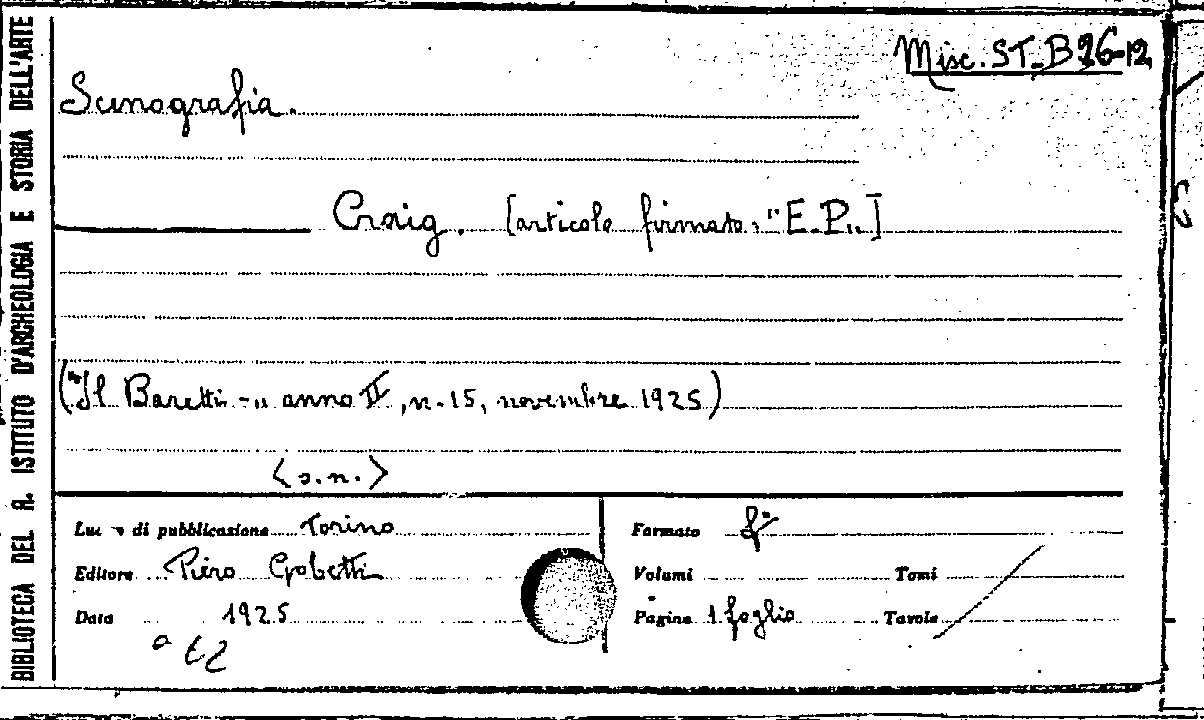 BIBLIOTECA DEL R. ISTITUTO D'ARCHEOLOGIA E STORIA DELL'ARTE
Misc. ST-B 26-12
Scenografia.
Craig. [articolo firmato: "E.P.„]
("Il Baretti -„ anno II, n. 15, novembre 1925)
<s.n.>
di pubblicazione Torino
Formato f°
Editore Piero Gobetti
Volumi Tomi
Data 1925
Pagine 1 foglio Tavole